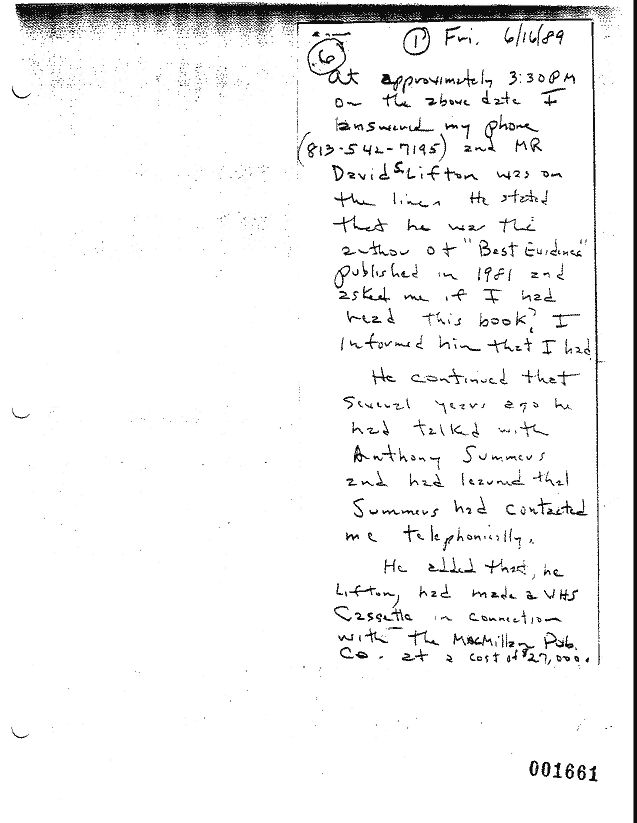 ① Fri. 6/16/89
6
At approximately 3:30 PM
on the above date I
answered my phone
(813-542-7195) and MR
David S Lifton was on
the line. He stated
that he was the
author of "Best Evidence"
published in 1981 and
asked me if I had
read this book? I
informed him that I had
He continued that
several years ago he
had talked with
Anthony Summers
and had learned that
Summers had contacted
me telephonically.
He added that, he
Lifton, had made a VHS
Cassette in connection
with the MacMillan Pub.
Co. at a cost of $27,000.
001661